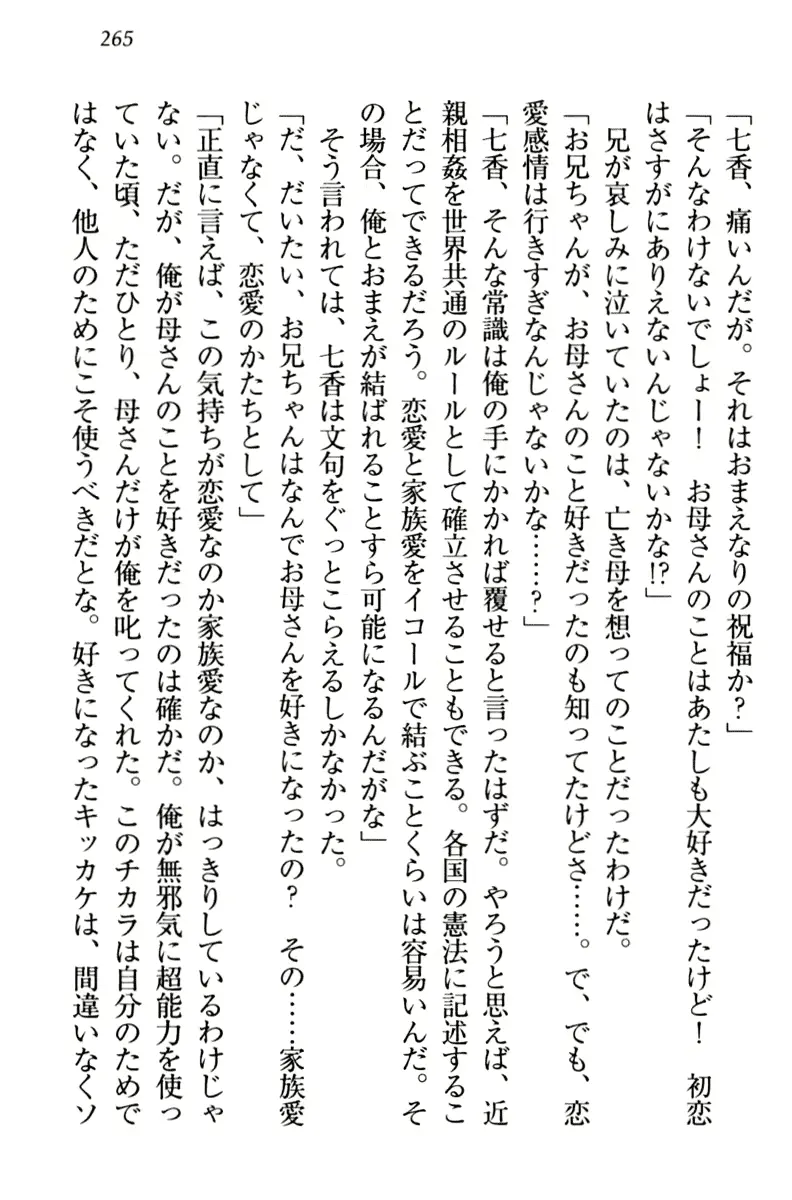 265
「七香、痛いんだが。それはおまえなりの祝福か？」
「そんなわけないでしょー！　お母さんのことはあたしも大好きだったけど！　初恋
はさすがにありえないんじゃないかな!?」
　兄が哀しみに泣いていたのは、亡き母を想ってのことだったわけだ。
「お兄ちゃんが、お母さんのこと好きだったのも知ってたけどさ……。で、でも、恋
愛感情は行きすぎなんじゃないかな……？」
「七香、そんな常識は俺の手にかかれば覆せると言ったはずだ。やろうと思えば、近
親相姦を世界共通のルールとして確立させることもできる。各国の憲法に記述するこ
とだってできるだろう。恋愛と家族愛をイコールで結ぶことくらいは容易いんだ。そ
の場合、俺とおまえが結ばれることすら可能になるんだがな」
　そう言われては、七香は文句をぐっとこらえるしかなかった。
「だ、だいたい、お兄ちゃんはなんでお母さんを好きになったの？　その……家族愛
じゃなくて、恋愛のかたちとして」
「正直に言えば、この気持ちが恋愛なのか家族愛なのか、はっきりしているわけじゃ
ない。だが、俺が母さんのことを好きだったのは確かだ。俺が無邪気に超能力を使っ
ていた頃、ただひとり、母さんだけが俺を叱ってくれた。このチカラは自分のためで
はなく、他人のためにこそ使うべきだとな。好きになったキッカケは、間違いなくソ